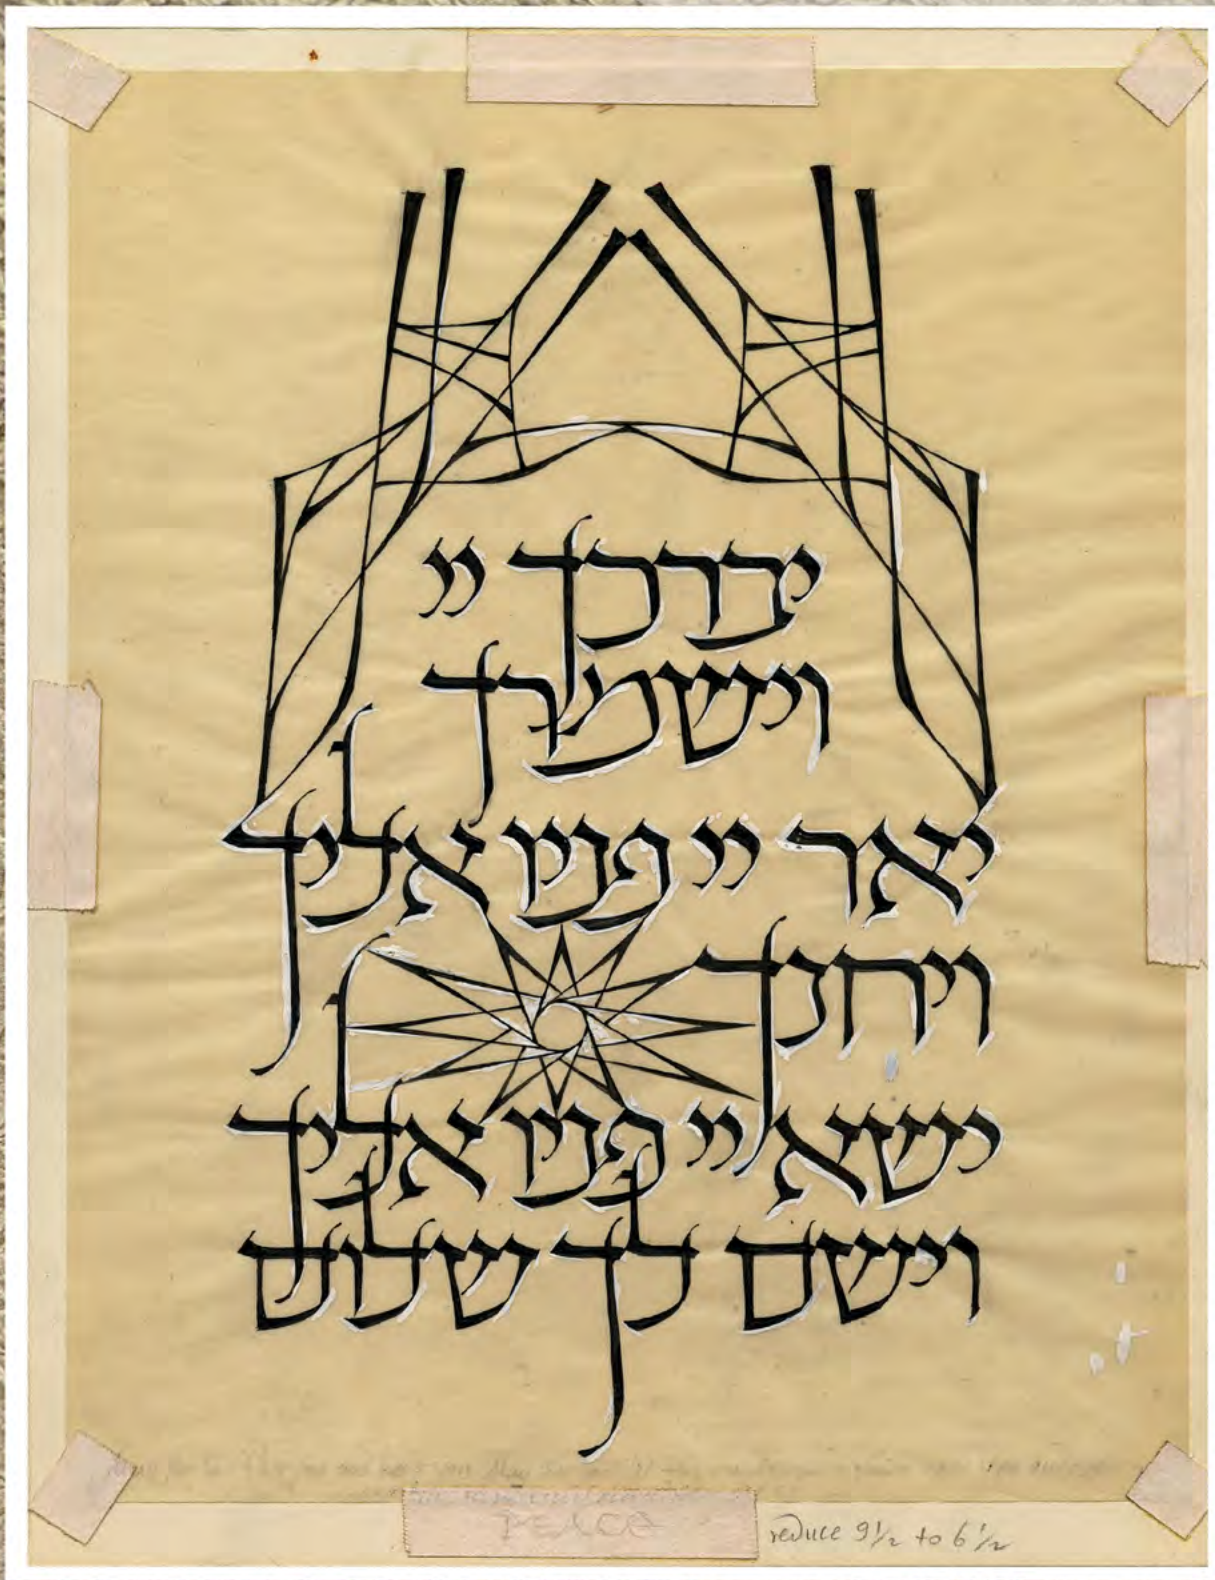 יברכך יי
וישמרך
יאר יי פניו אליך
ויחנך
ישא יי פניו אליך
וישם לך שלום
PEACE
reduce 9 1/2 to 6 1/2